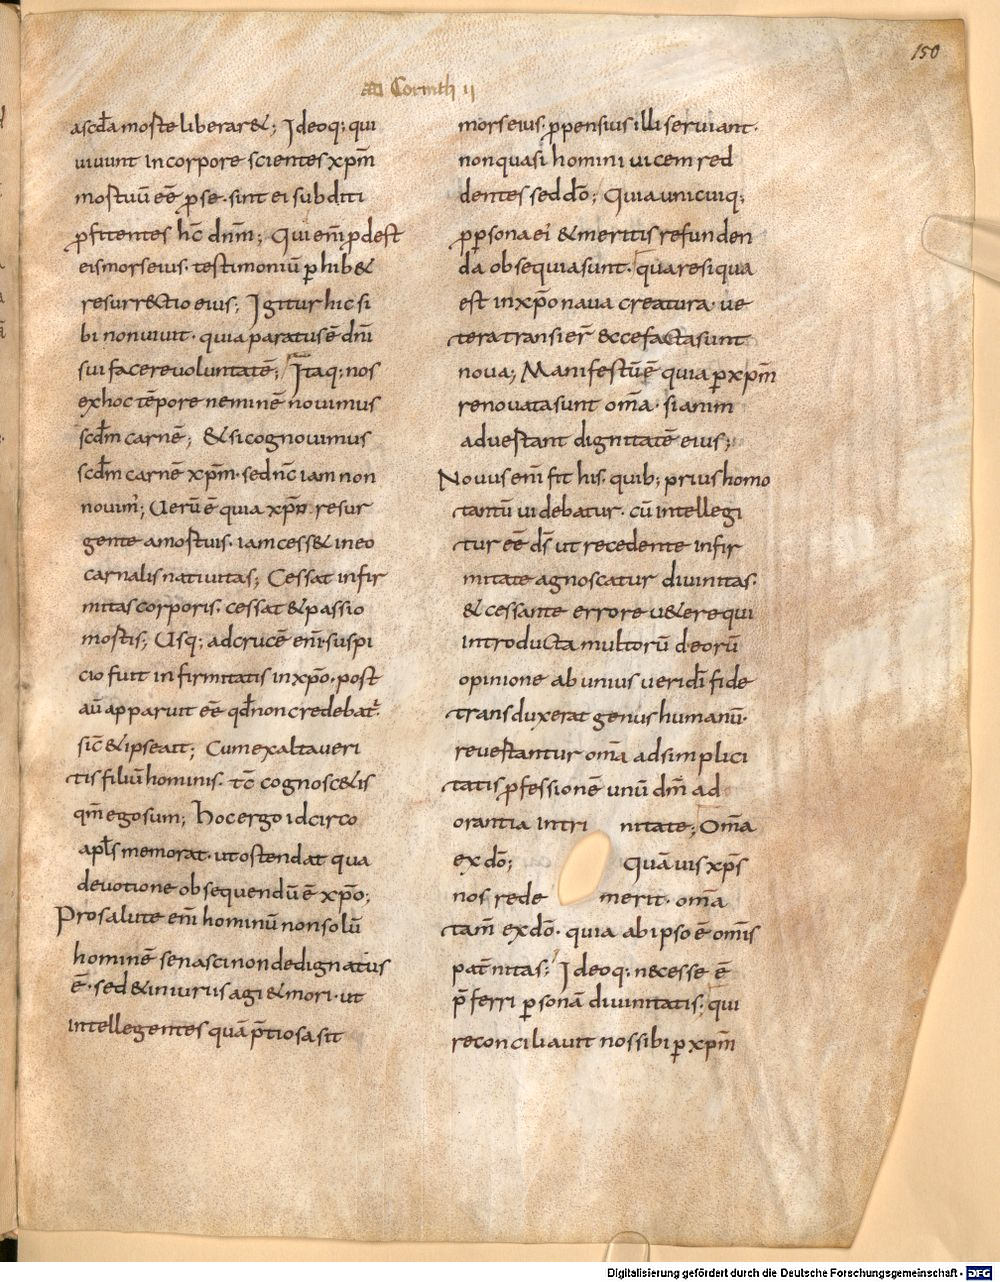 150
AD Corinth II
ascd̄a morte liberar&; Ideoq; qui
uiuunt incorpore scientes xp̄m
mortuū eē ꝓse · sint ei subditi
ꝓfitentes hc̄ dn̄m; Qui eni̅ ꝓdest
eis mors eius · testimoniū ꝑhib&
resurr&tio eius; Igitur hic si
bi non uiuit · quia paratus ē dn̄i
sui facere uoluntatē; Itaq; nos
ex hoc tēpore neminē nouimus
scd̄m carnē; & si cognouimus
scd̄m carnē xp̄m · sed nc̄ iam non
nouim'; Uerū ē quia xp̄o resur
gente amortuis · iam cess& in eo
carnalis natiuitas; Cessat infir
mitas corporis · cessat & passio
mortis; Usq; ad crucē eni̅ suspi
cio fuit infirmitatis in xp̄o · post
aū apparuit eē qd̄ non credebat̄ ·
sic̄ & ipse ait; Cum exaltaueri
tis filiū hominis · tc̄ cognosc&is
qm̄ ego sum; hoc ergo idcirco
apl̄s memorat · ut ostendat qua
deuotione obsequendū ē xp̄o;
Pro salute eni̅ hominū non solū
hominē se nasci non dedignatus
ē · sed & iniuriis agi & mori · ut
intellegentes quā p̄tiosa sit
mors eius · ꝓpensius illi seruiant ·
non quasi homini uicem red
dentes sed do̅; Quia unicuiq;
ꝓ ꝑsona ei & meritis refunden
da obsequia sunt · quare si qua
est in xp̄o naua creatura · ue
tera transier̄ & ecce facta sunt
noua; Manifestū ē quia ꝑ xp̄m
renouata sunt om̄a · si anim
aduertant dignitatē eius;
Nouus eni̅ fit his · quib; prius homo
tantū uidebatur · cū intellegi
tur eē ds̄ ut recedente infir
mitate agnoscatur diuinitas ·
& cessante errore u&ere qui
introducta multorū deorū
opinione ab unius ueri di̅ fide
transduxerat genus humanū ·
reuertantur om̄a ad simplici
tatis ꝓfessionē unū dm̄ ad
orantia in trinitate; Om̄a
ex do̅; Quāuis xp̄s
nos redemerit · om̄a
tam̄ ex do̅ · quia ab ipso ē om̄is
pat̄nitas; Ideoq; necesse ē
p̄ferri ꝑsonā diuinitatis · qui
reconciliauit nos sibi ꝑ xp̄m
Digitalisierung gefördert durch die Deutsche Forschungsgemeinschaft - DFG